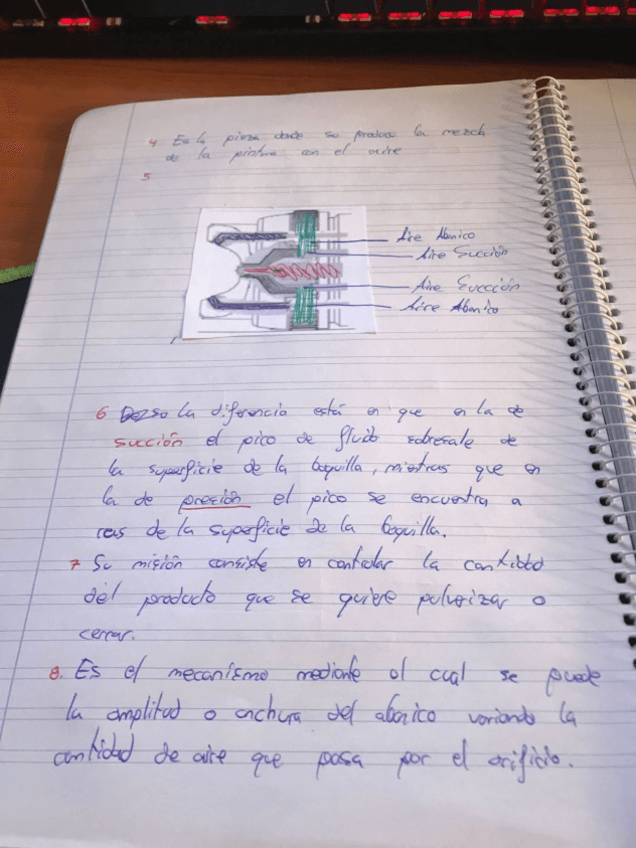 4 Es la pieza donde su produce la mezch
de la pintura con el aire
5
Aire Abanico
Aire Succión
Aire Succión
Aire Abanico
6 la diferencia está en que en la de
succión el pico de fluido sobresale de
la superficie de la boquilla, mientras que en
la de presión el pico se encuentra a
ras de la superficie de la boquilla.
7 Su misión consiste en controlar la cantidad
del producto que se quiere pulverizar o
cerrar.
8. Es el mecanismo mediante el cual se puede
la amplitud o anchura del abanico variando la
cantidad de aire que pasa por el orificio.